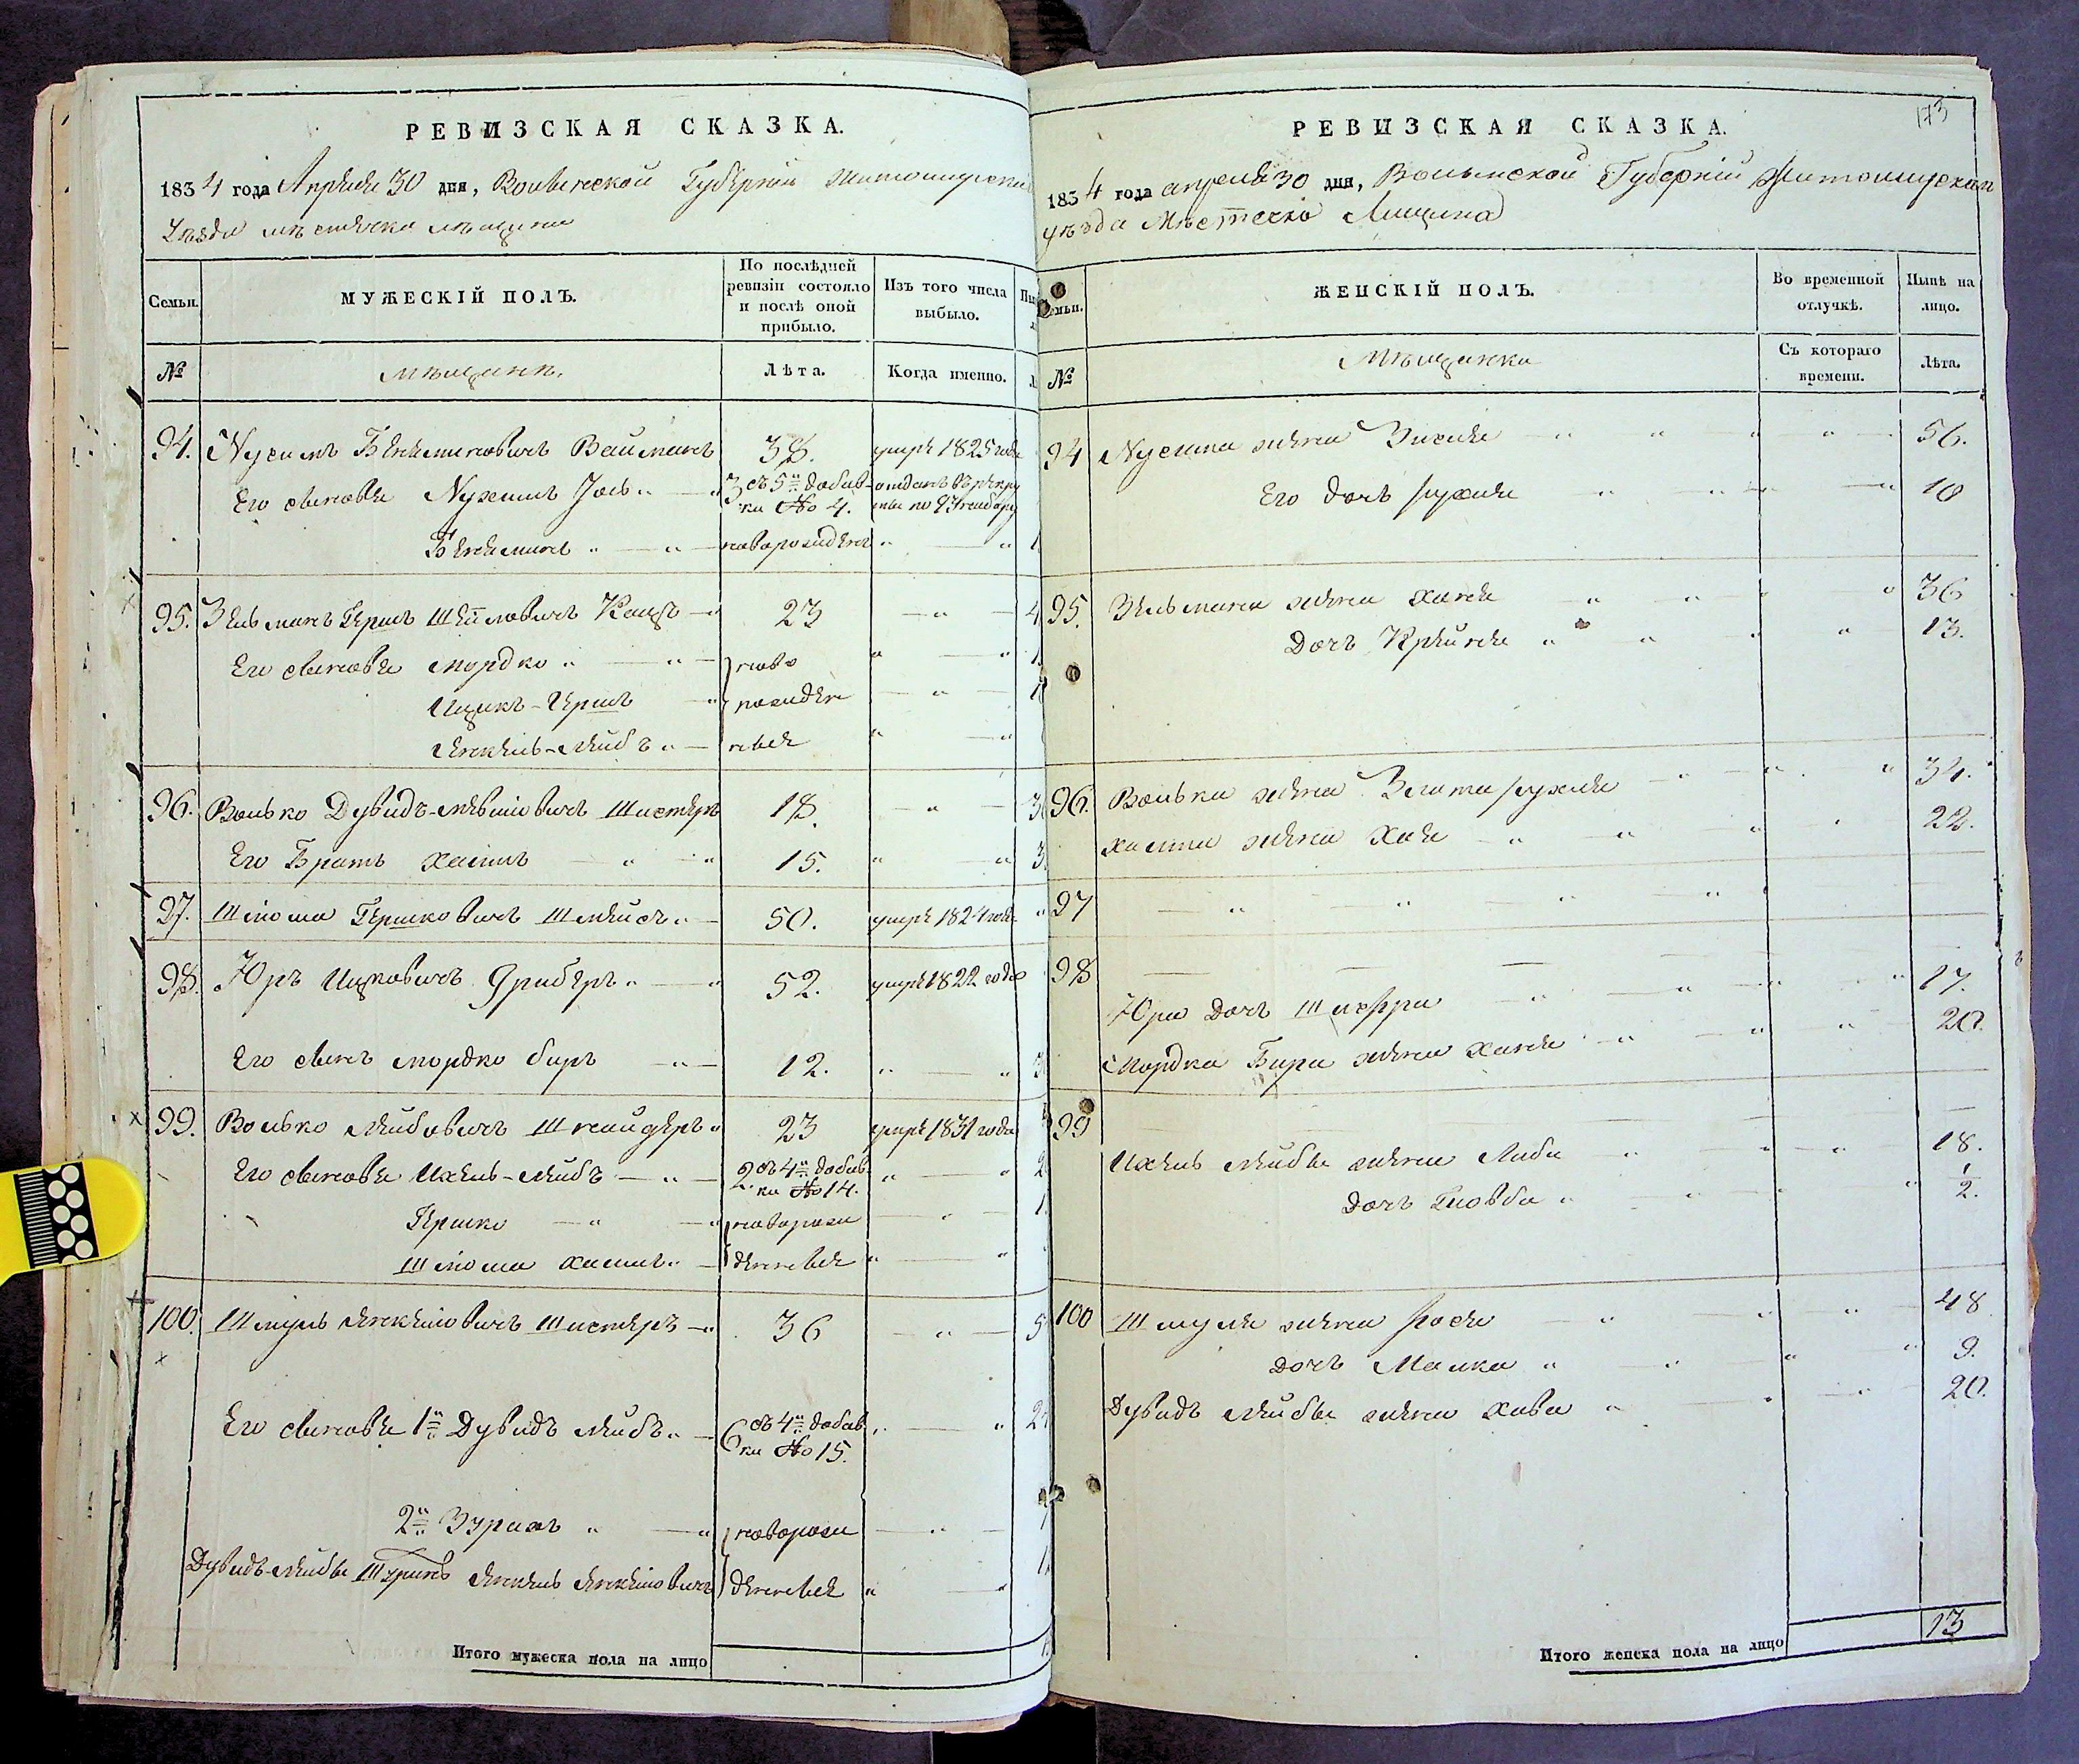 РЕВИЗСКАЯ СКАЗКА.
1834 года Апреля 30 дня, Волынской Губернии Житомирска
Уезда местечка
Семьи. МУЖЕСКІЙ ПОЛЪ. По послѣдней ревизіи состояло и послѣ оной прибыло. Изъ того числа выбыло.
№ мещане. Лѣта. Когда именно.
94. Нухимъ Бениаминовичъ Вайманъ 38. умре 1825 года
Его сыновья Нухимъ Іось 3 съ 5й добавки No 4. отданъ въ рекру
Бениаминъ новорожденъ
95. Зельманъ Гершъ Кацъ 23
Его сыновья Мордко ново
Ицикъ-Гершъ рожден
Янкель-Лейбъ ные
96. Волько Дувидъ-Лейвіовичъ Шистеръ 18.
Его Братъ Хаимъ 15.
97. Шлioма Гершковичъ 50. умре 1824 года
98. Юръ Ицковичъ Гриберъ 52. умре 1822 года
Его сынъ Мордко Биръ 12.
99. Волько Лейбовичъ Шнайдеръ 23 умре 1831 года
Его сыновья Ихель-Лейбъ 2 съ 4й добавки No 14.
Гершко новорож
Шлioма Хаимъ денные
100. Шмуль Янкеліовичъ Шистеръ 36
Его сыновья 1й Дувидъ Лейбъ 6 съ 4й добавки No 15.
2й новорож
Дувидъ-Лейбы Янкель Янкеліовичъ денные
Итого мужеска пола на лицо
173
РЕВИЗСКАЯ СКАЗКА.
1834 года апреля 30 дня, Волынской Губерніи Житомирскаго
уезда Местечка
Семьи. ЖЕНСКІЙ ПОЛЪ. Во временной отлучкѣ. Нынѣ на лицо.
№ Мещанки Съ котораго времени. Лѣта.
94 Нусима жена 56.
Его дочь Рухля 10
95. Зельмана жена Ханя 36
Дочь Крейня 13.
96. Волька жена Злата Рухля 34.
Хаима жена Хая 22.
97
98
Юра дочь Шифра 17.
Мордка Бира жена Ханя 20.
99
Ихель Лейбы жена Либа 18.
дочь 1/2.
100 Шмуля жена Рося 48
дочь Малка 9.
Дувидъ Лейбы жена Хава 20.
Итого женска пола на лицо 13